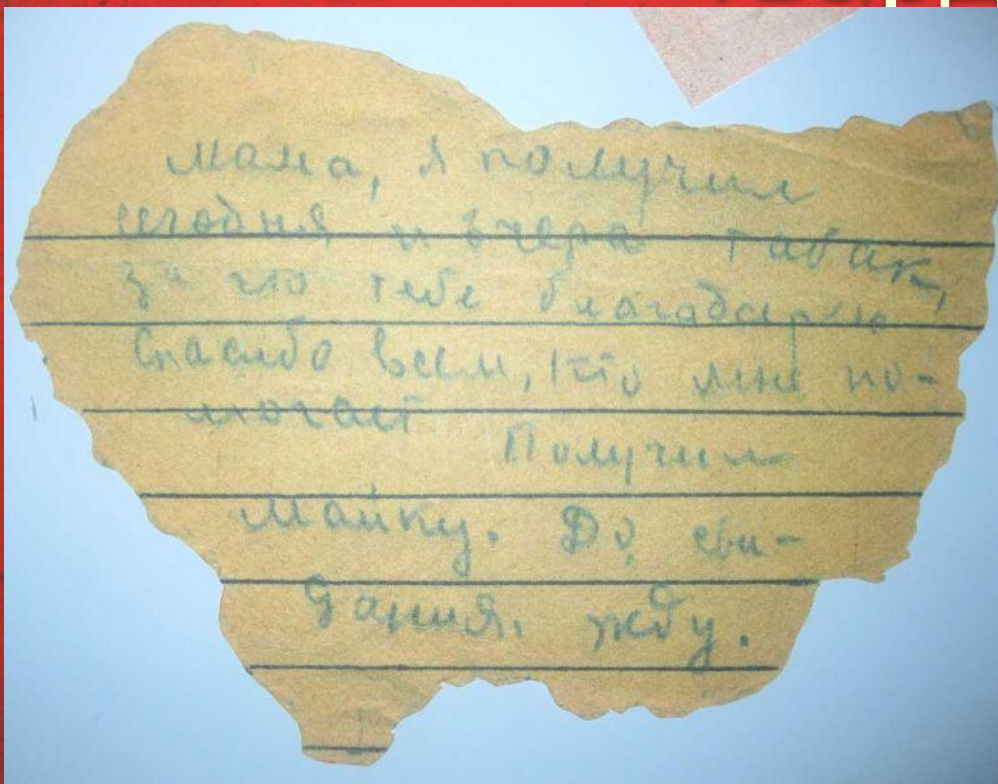 Мама, я получил
сегодня и вчера табак,
за что тебе благодарю
Спасибо всем, кто мне по-
могает Получил
Майку. До сви-
дания. жду.